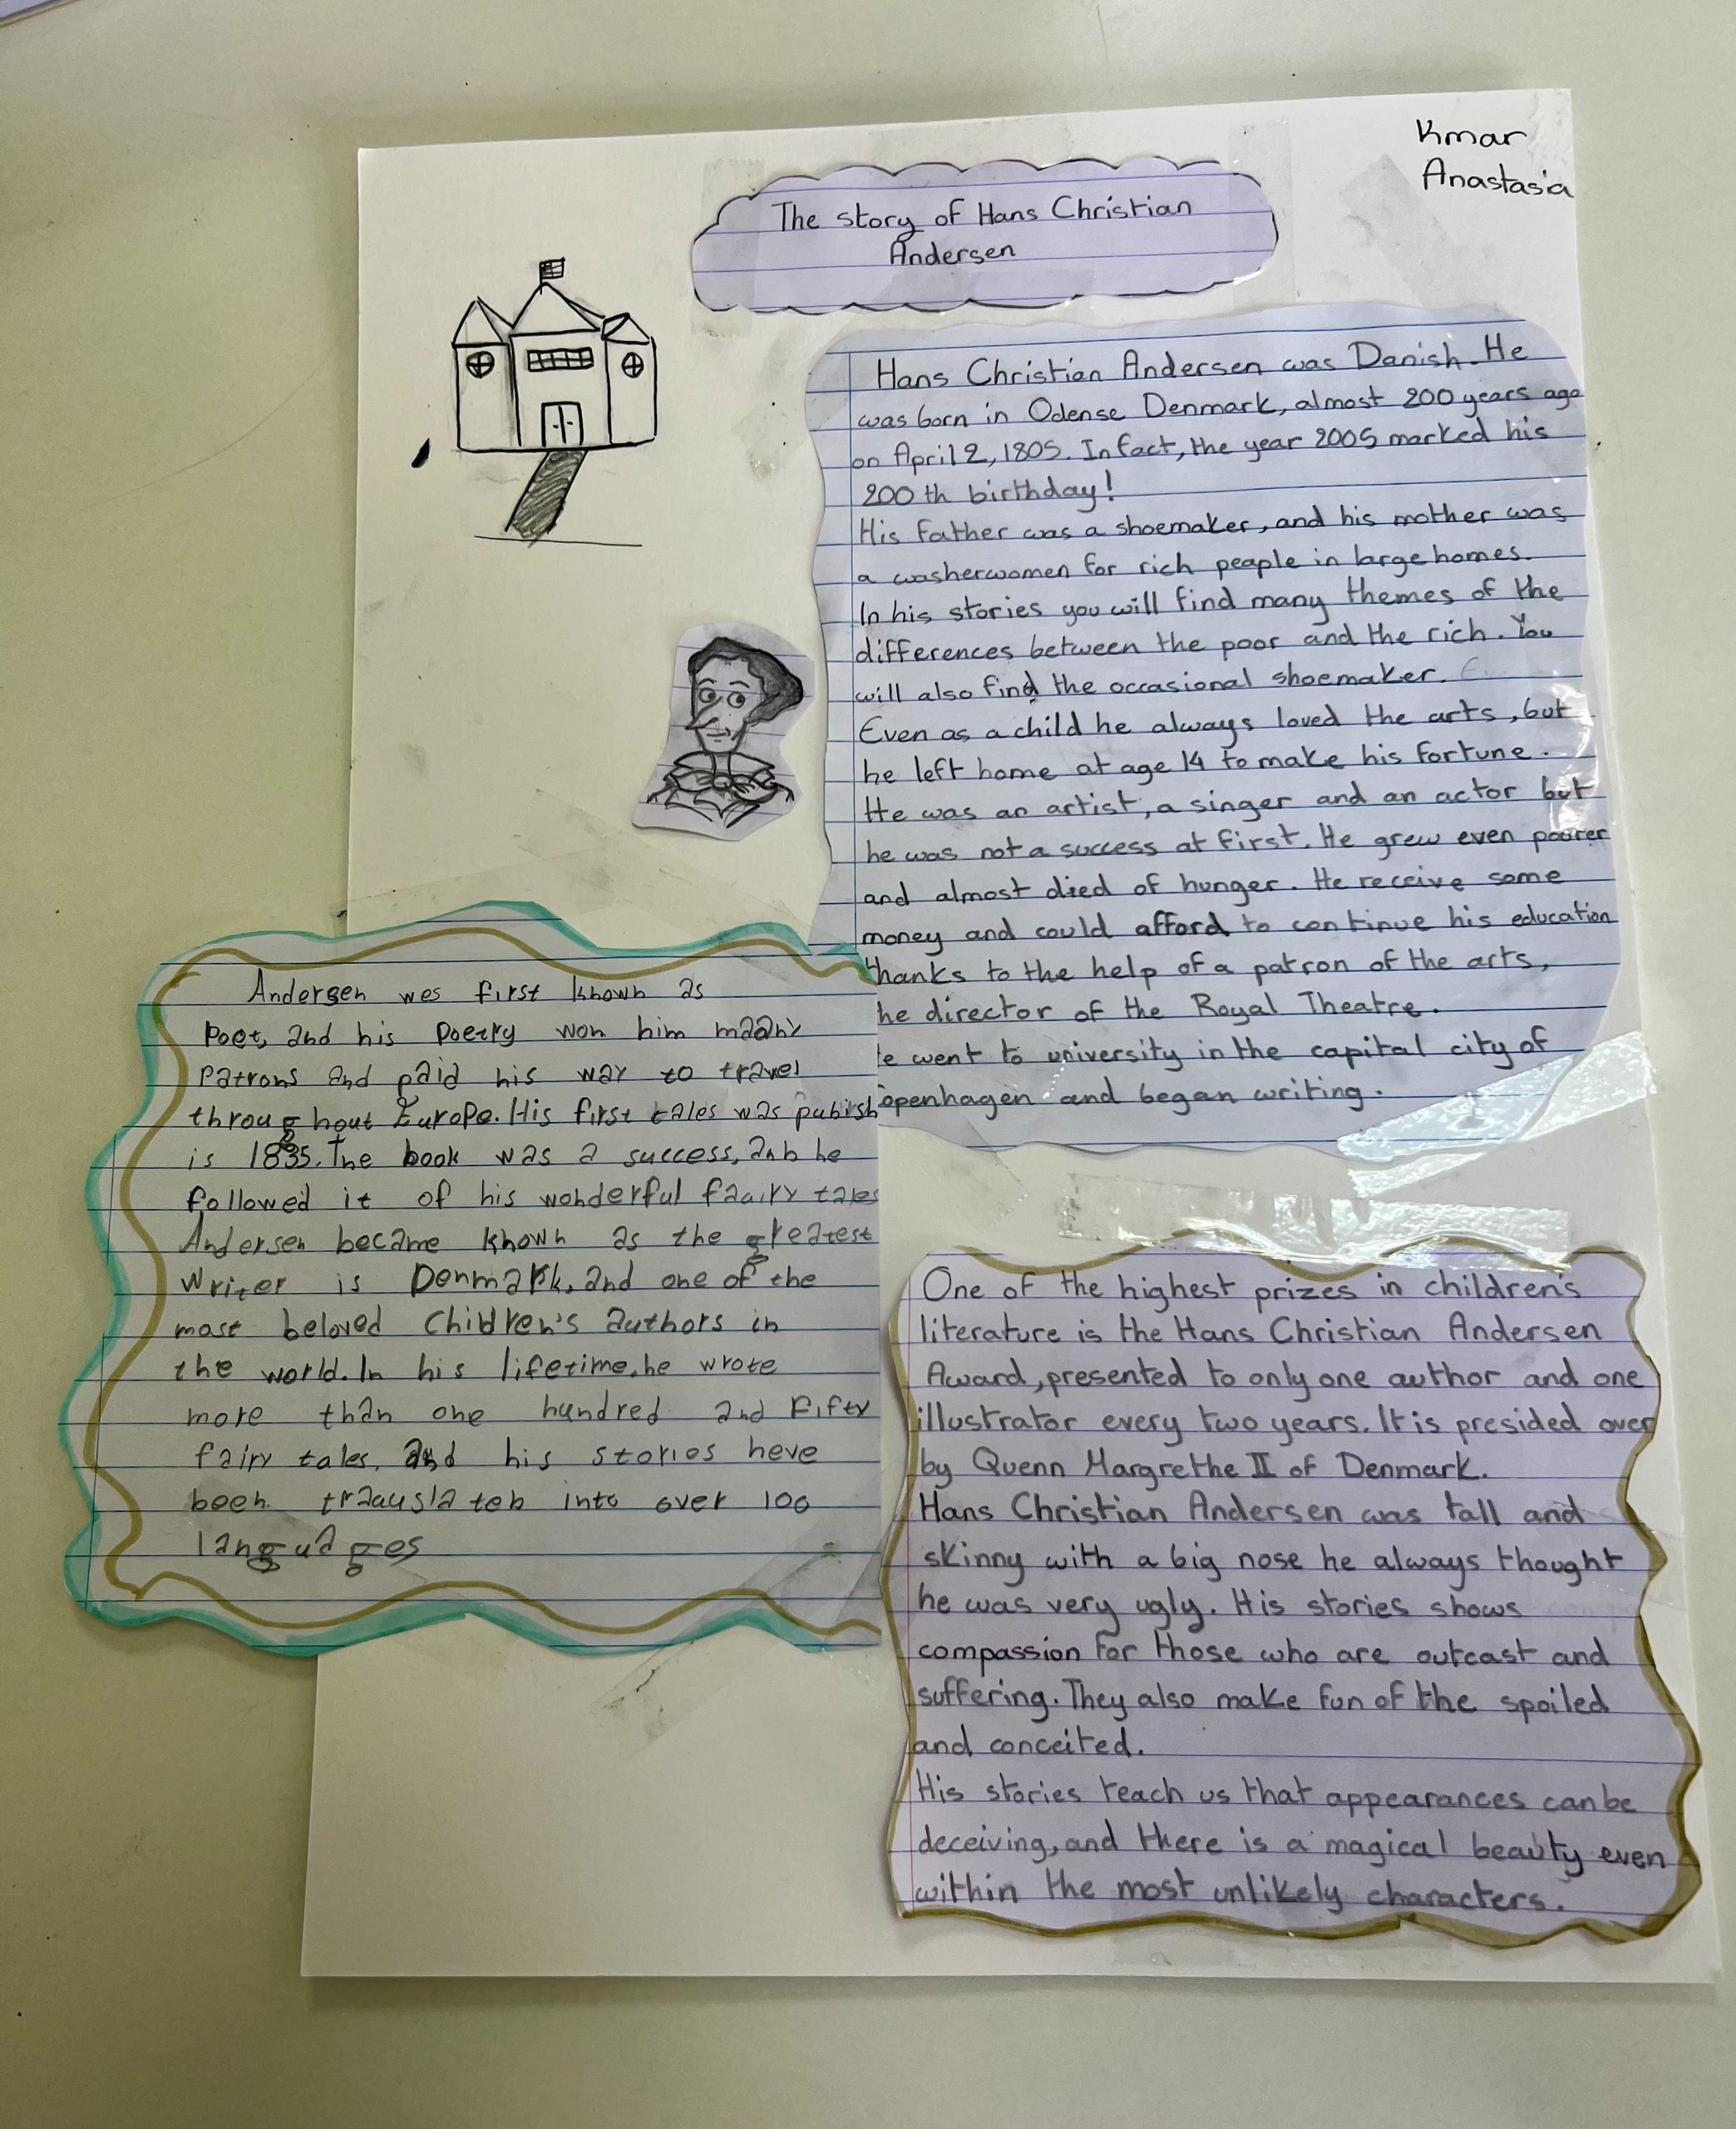 Kmar
Anastasia
The story of Hans Christian
Andersen
Hans Christian Andersen was Danish. He
was born in Odense Denmark, almost 200 years ago
on April 2, 1805. In fact, the year 2005 marked his
200 th birthday!
His father was a shoemaker, and his mother was
a washerwomen for rich people in large homes.
In his stories you will find many themes of the
differences between the poor and the rich. You
will also find the occasional shoemaker.
Even as a child he always loved the arts, but
he left home at age 14 to make his fortune.
He was an artist, a singer and an actor but
he was not a success at first. He grew even poorer
and almost died of hunger. He receive some
money and could afford to continue his education
thanks to the help of a patron of the arts,
he director of the Royal Theatre.
e went to university in the capital city of
openhagen and began writing.
Andersen wes first known as
Poet, and his Poetry won him maany
Patrons and paid his way to travel
throughout Europe. His first tales was pubish
is 1835. The book was a success, anb he
followed it of his wonderful faairy tales
Andersen became known as the greatest
writer is Denmark, and one of the
most beloved Children's authors in
the world. In his lifetime, he wrote
more than one hundred and Fifty
fairy tales, and his stories heve
been traausla teb into over 100
languages
One of the highest prizes in children's
literature is the Hans Christian Andersen
Award, presented to only one author and one
illustrator every two years. It is presided over
by Quenn Margrethe II of Denmark.
Hans Christian Andersen was tall and
skinny with a big nose he always thought
he was very ugly. His stories shows
compassion for those who are outcast and
suffering. They also make fun of the spoiled
and conceited.
His stories teach us that appearances can be
deceiving, and there is a magical beauty even
within the most unlikely characters.